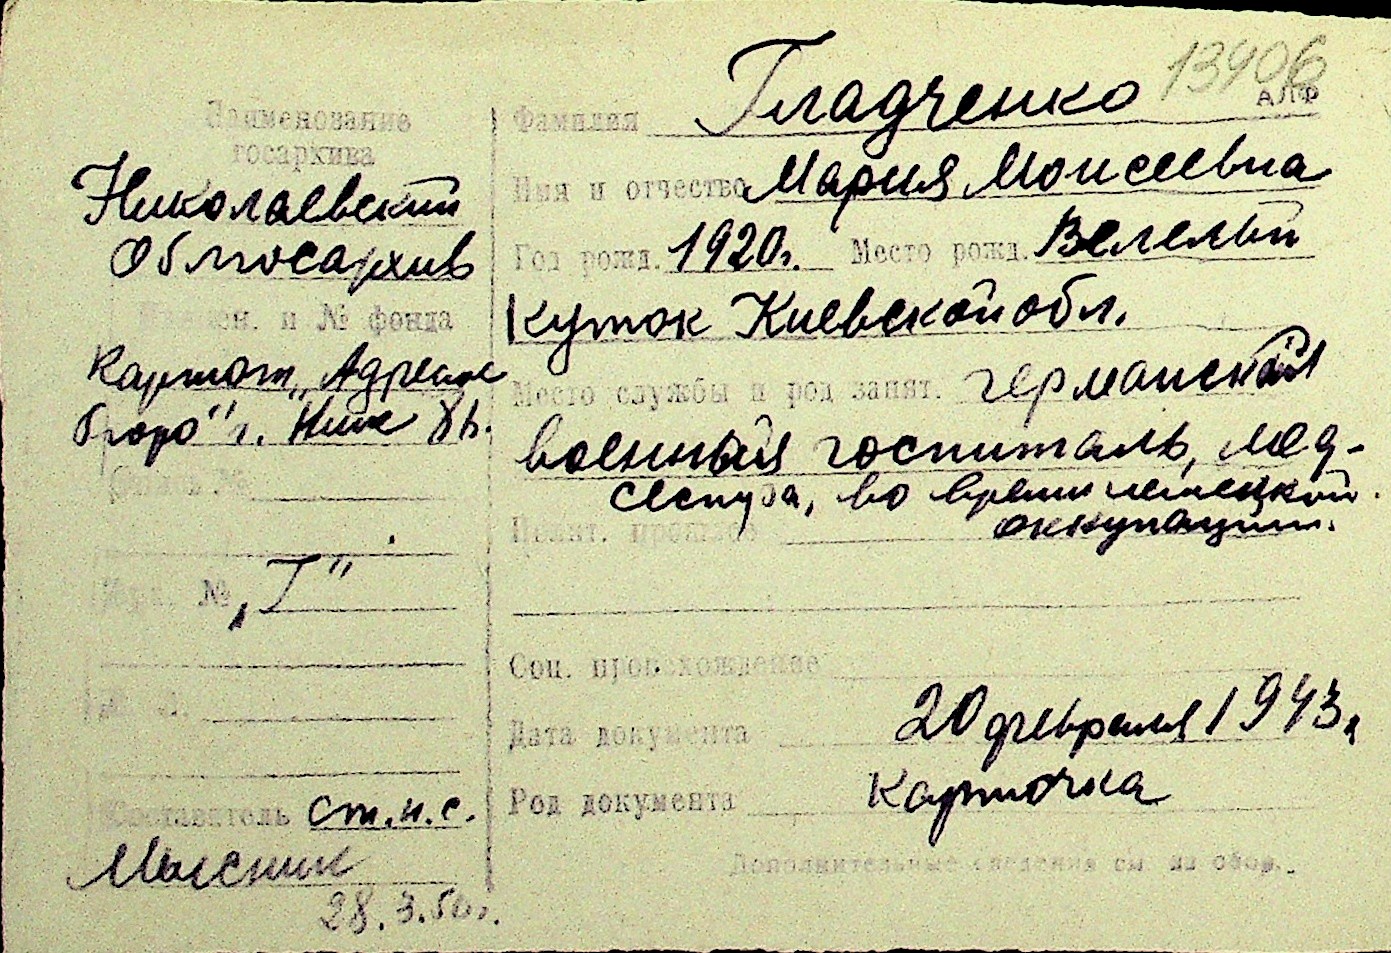 13406
АЛФ
Наименование
госархива
Николаевский
Облгосархив
Наимен. и № фонда
Картот. „Адресн
бюро" г.
Опись №
Арх. № „I"
Составитель ст.н.с.
28.3.50г.
Фамилия Гладченко
Имя и отчество Мария Моисеевна
Год рожд. 1920г. Место рожд.
Куток Киевской обл.
Место службы и род занят. германский
военный госпиталь, мед-
сестра, во время немецкой
оккупации.
Полит. прошлое
Соц. происхождение
Дата документа 20 февраля 1943г
Род документа Карточка
Дополнительные сведения см. на обор.